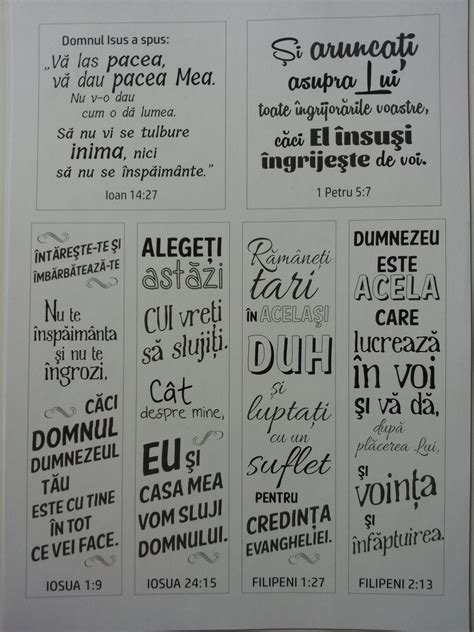 Domnul Isus a spus:
„Vă las pacea,
vă dau pacea Mea.
Nu v-o dau
cum o dă lumea.
Să nu vi se tulbure
inima, nici
să nu se înspăimânte.”
Ioan 14:27
Și aruncați
asupra Lui
toate îngrijorările voastre,
căci El însuși
îngrijește de voi.
1 Petru 5:7
ÎNTĂREȘTE-TE ȘI
ÎMBĂRBĂTEAZĂ-TE
Nu te
înspăimânta
și nu te
îngrozi,
CĂCI
DOMNUL
DUMNEZEUL
TĂU
ESTE CU TINE
ÎN TOT
CE VEI FACE.
IOSUA 1:9
ALEGEȚI
astăzi
CUI vreți
să slujiți.
Cât
despre mine,
EU și
CASA MEA
VOM SLUJI
DOMNULUI.
IOSUA 24:15
Rămâneți
tari
ÎN ACELAȘI
DUH
și
luptați
cu un
suflet
PENTRU
CREDINȚA
EVANGHELIEI.
FILIPENI 1:27
DUMNEZEU
ESTE
ACELA
CARE
lucrează
în voi
și vă dă,
după
plăcerea Lui,
și
voința
și
înfăptuirea.
FILIPENI 2:13